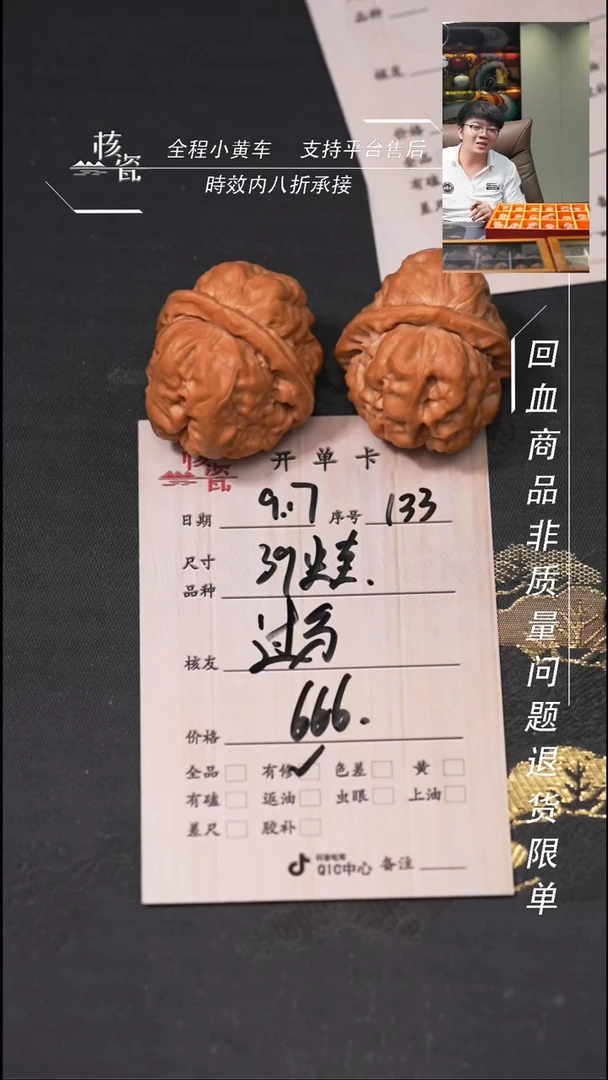 品种
核友
价格
有磕
差尺
核瓷
全程小黄车 支持平台售后
時效内八折承接
回血商品非质量问题退货限单
核瓷
开单卡
日期 9.17 序号 133
尺寸
品种 39
核友 过
价格 666.
全品 有修 色差 黄
有磕 返油 虫眼 上油
差尺 胶补
抖音电商
QIC中心 备注